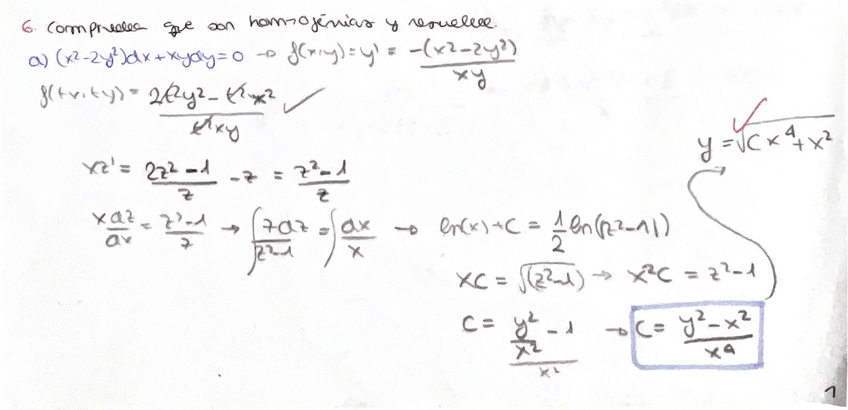 6. Comprueba que son homogéneas y resuelve.
a) (x²-2y²)dx+xydy=0 → f(x,y)=y' = -(x²-2y²)/xy
f(tx,ty) = (2t²y² - t²x²)/t²xy ✓
xz' = (2z²-1)/z - z = (z²-1)/z
xdz/dx = (z²-1)/z → ∫zdz/(z²-1) = ∫dx/x → ln(x)+C = 1/2 ln(|z²-1|)
xC = √(z²-1) → x²C = z²-1
C = (y²/x² - 1)/x² → C = (y²-x²)/x⁴
y = √(Cx⁴+x²) ✓
1